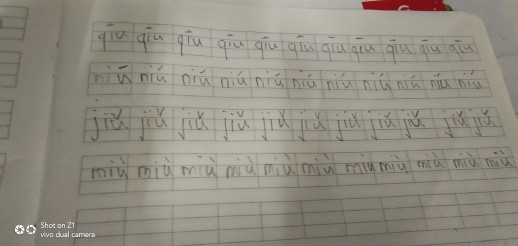 qiū qiū qiū qiū qiū qiū qiū qiū qiū qiū qiū
niú niú niú niú niú niú niú niú niú niú niú
jiǔ jiǔ jiǔ jiǔ jiǔ jiǔ jiǔ jiǔ jiǔ jiǔ jiǔ
miù miù miù miù miù miù miù miù miù miù miù
Shot on Z1
vivo dual camera